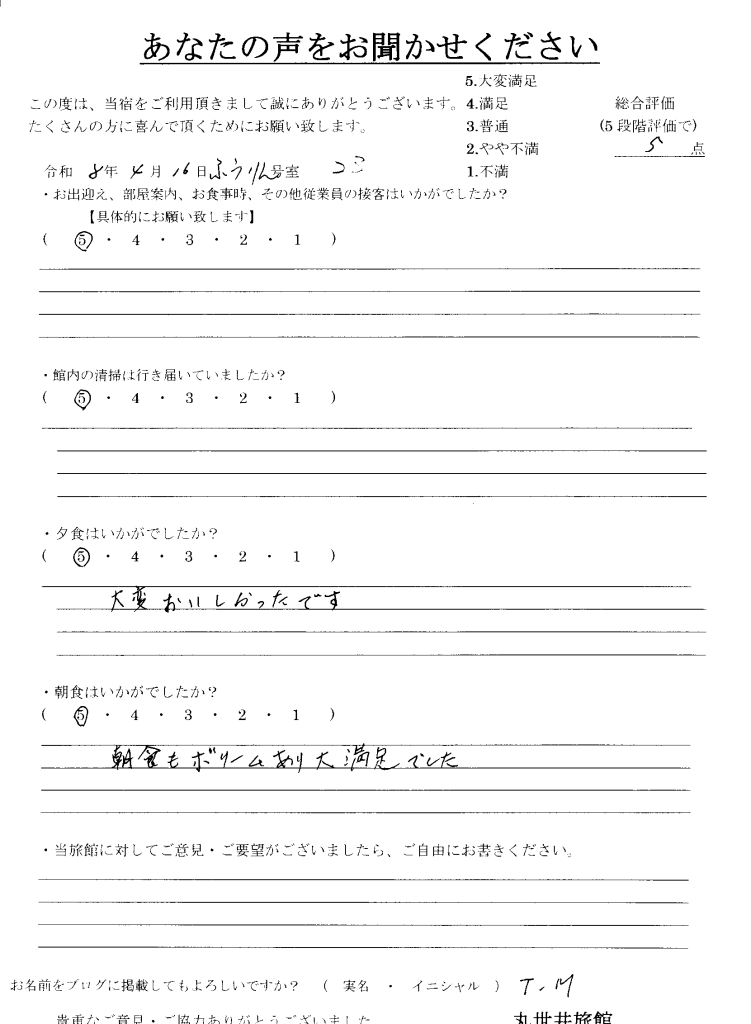 あなたの声をお聞かせください
5.大変満足
この度は、当宿をご利用頂きまして誠にありがとうございます。 4.満足 総合評価
たくさんの方に喜んで頂くためにお願い致します。 3.普通 (5段階評価で)
2.やや不満 5 点
令和 8年 4月 16日 ふうりん号室 1.不満
・お出迎え、部屋案内、お食事時、その他従業員の接客はいかがでしたか？
【具体的にお願い致します】
( ⑤ ・ 4 ・ 3 ・ 2 ・ 1 )
・館内の清掃は行き届いていましたか？
( ⑤ ・ 4 ・ 3 ・ 2 ・ 1 )
・夕食はいかがでしたか？
( ⑤ ・ 4 ・ 3 ・ 2 ・ 1 )
大変おいしかったです
・朝食はいかがでしたか？
( ⑤ ・ 4 ・ 3 ・ 2 ・ 1 )
朝食もボリームあり大満足でした
・当旅館に対してご意見・ご要望がございましたら、ご自由にお書きください。
お名前をブログに掲載してもよろしいですか？ ( 実名 ・ イニシャル ) T.M
貴重なご意見・ご協力ありがとうございました 丸世井旅館